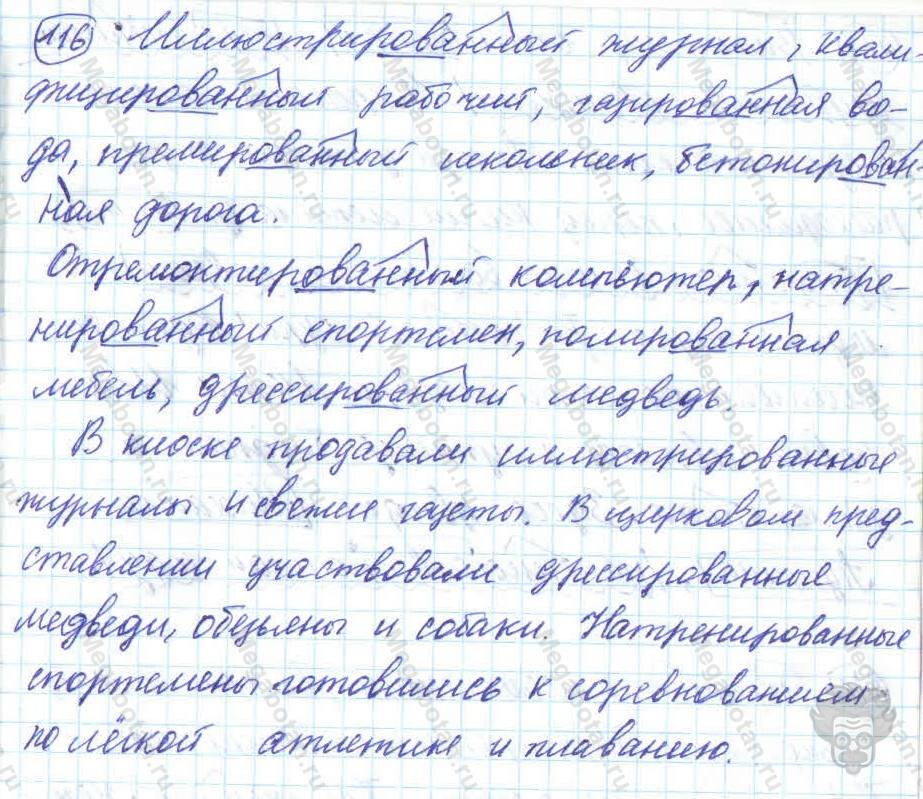 116 Иллюстрированный журнал, квали-
фицированный рабочий, газированная во-
да, премированный школьник, бетонирован-
ная дорога.
Отремонтированный компьютер, натре-
нированный спортсмен, полированная
мебель, дрессированный медведь.
В киоске продавали иллюстрированные
журналы и свежие газеты. В цирковом пред-
ставлении участвовали дрессированные
медведи, обезьяны и собаки. Натренированные
спортсмены готовились к соревнованиям
по лёгкой атлетике и плаванию.
Megabotan.ru